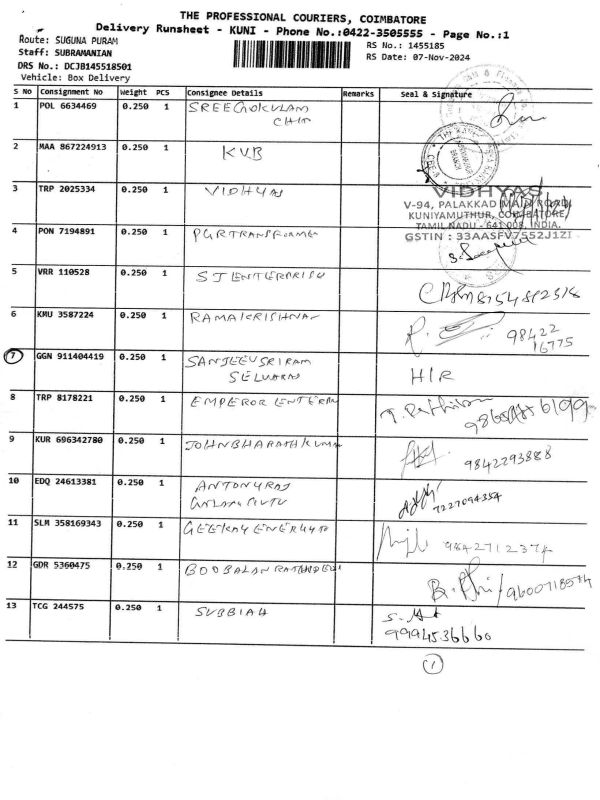 THE PROFESSIONAL COURIERS, COIMBATORE
Delivery Runsheet - KUNI - Phone No.:0422-3505555 - Page No.:1
Route: SUGUNA PURAM
RS No.: 1455185
Staff: SUBRAMANIAN
RS Date: 07-Nov-2024
DRS No.: DCJB145518501
Vehicle: Box Delivery
S NO Consignment No Weight PCS Consignee Details Remarks Seal & Signature
1 POL 6634469 0.250 1 SREEGOKULAM
CHIT
2 MAA 867224913 0.250 1 KVB
3 TRP 2025334 0.250 1 VIDHYAS
VIDHYAS
V-94, PALAKKAD MAIN ROAD,
KUNIYAMUTHUR, COIMBATORE,
TAMIL NADU - 641 008, INDIA.
GSTIN : 33AASFV7552J1ZI
4 PON 7194891 0.250 1
5 VRR 110528 0.250 1 SJ ENTERPRISE
6 KMU 3587224 0.250 1 RAMAKRISHNAN
98422
16775
7 GGN 911404419 0.250 1 SANJEEV SRIRAM
SELVARAJ
H/R
8 TRP 8178221 0.250 1 EMPEROR ENTERPR
9 KUR 696342780 0.250 1 JOHNBHARATHKUMA
9842293888
10 EDQ 24613381 0.250 1 ANTONYRAJ
7227094354
11 SLM 358169343 0.250 1 GEEKAY ENERGY
9842712374
12 GDR 5360475 0.250 1 BOOBALAN
9600718574
13 TCG 244575 0.250 1 SUBBIAH
9994536660
1